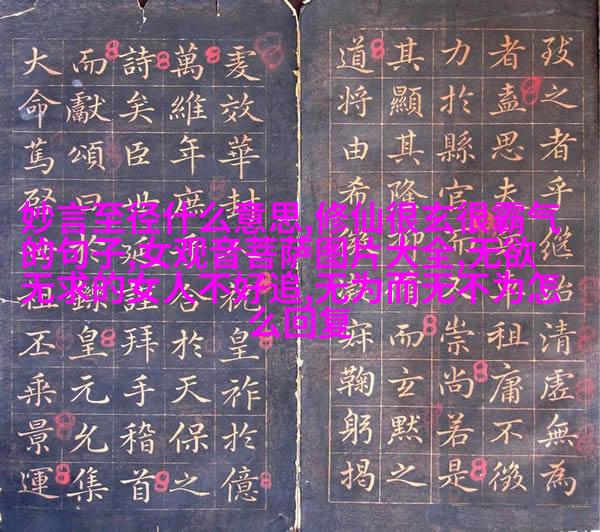 致之者乎繼清虛無為
者盍思夫祖庸不徵
力於縣官而不崇尚若是
其顯其隆抑而玄默之
道將由希寂鞠躬揭
虔效華封祝皇祚於億
萬維年慶合於天保之
詩矣臣世謹拜手稽首
而獻頌曰於鑠皇元允集
大命篤啓祖丕乘景運
妙言至径什么意思,修仙很玄很霸气
的句子,女观音菩萨图片大全,无欲
无求的女人不好追,无为而无不为怎
么回复